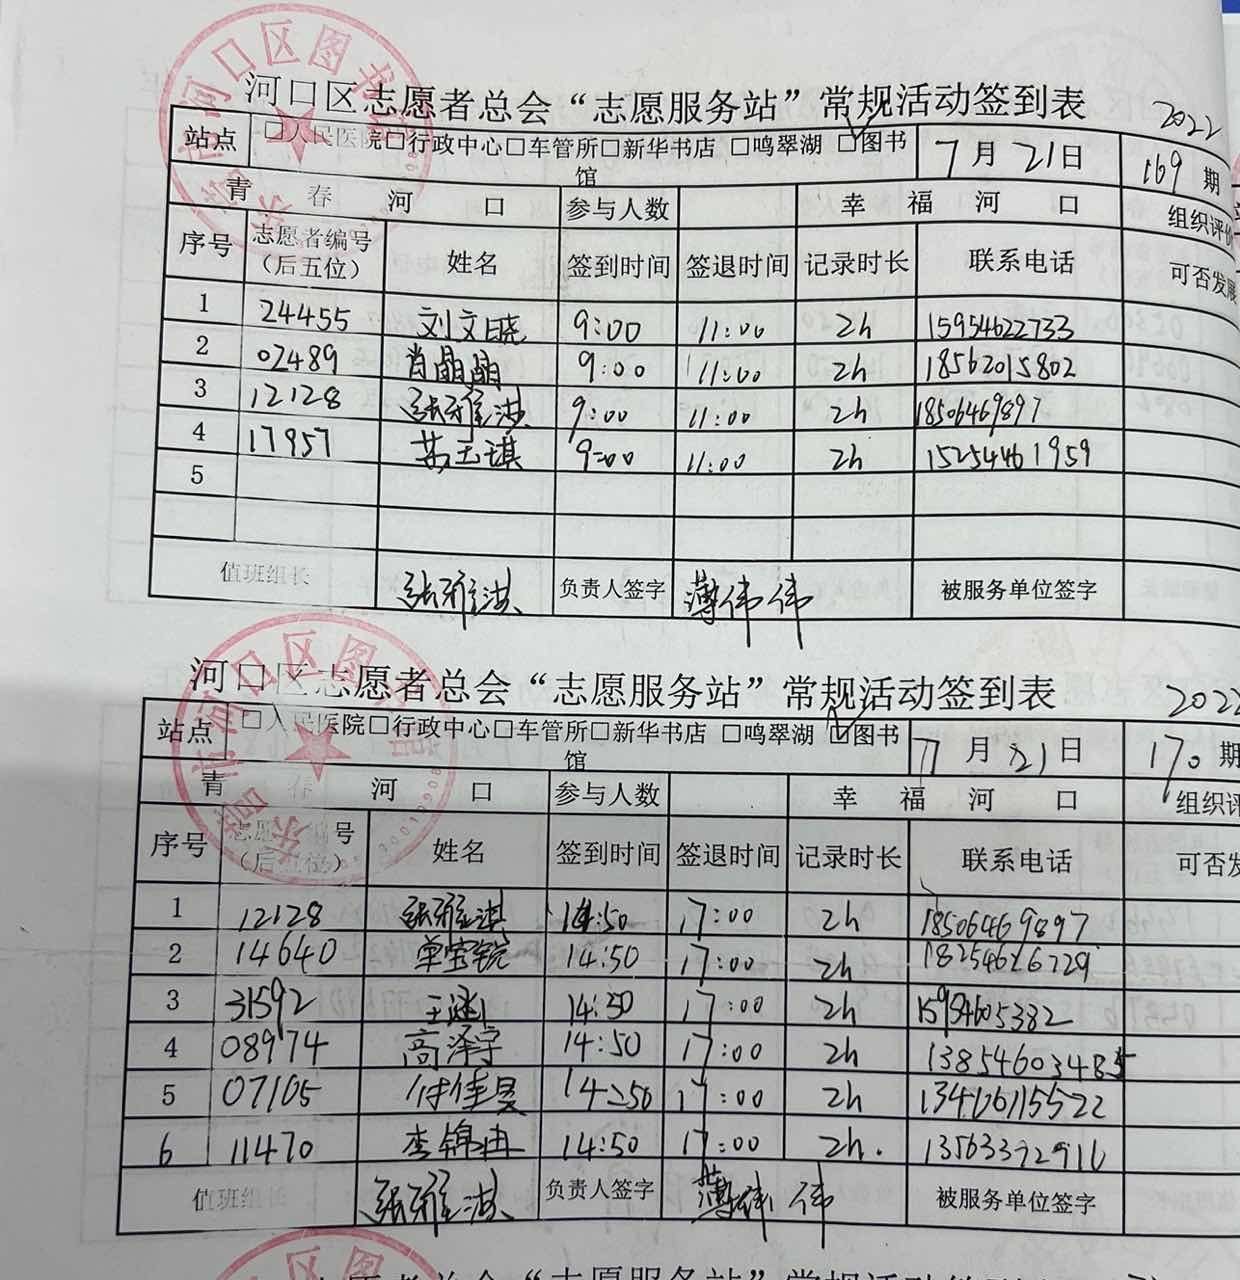 河口区志愿者总会“志愿服务站”常规活动签到表
2022
站点 □人民医院□行政中心□车管所□新华书店 □鸣翠湖 ☑图书馆 7月21日 169期
青春河口 参与人数 幸福河口 组织评价
序号 志愿者编号（后五位） 姓名 签到时间 签退时间 记录时长 联系电话 可否发展
1 24455 刘文晓 9:00 11:00 2h 15954622733
2 02489 肖晶晶 9:00 11:00 2h 18562015802
3 12128 张雅淇 9:00 11:00 2h 18506469897
4 17957 玉琪 9:00 11:00 2h 15254461959
5
值班组长 张雅淇 负责人签字 薄伟伟 被服务单位签字
河口区志愿者总会“志愿服务站”常规活动签到表
2022
站点 □人民医院□行政中心□车管所□新华书店 □鸣翠湖 ☑图书馆 7月21日 170期
青春河口 参与人数 幸福河口 组织评
序号 志愿者编号（后五位） 姓名 签到时间 签退时间 记录时长 联系电话 可否发
1 12128 张雅淇 14:50 17:00 2h 18506469897
2 14640 单宝锐 14:50 17:00 2h
3 31592 王涵 14:50 17:00 2h 15954605382
4 08974 高泽宇 14:50 17:00 2h 13854603485
5 07105 付佳昱 14:50 17:00 2h
6 11470 李锦冉 14:50 17:00 2h. 13563372910
值班组长 张雅淇 负责人签字 薄伟伟 被服务单位签字